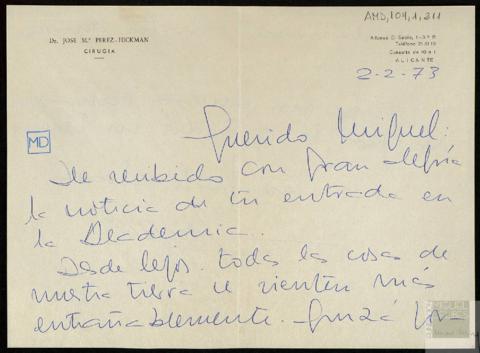 AMD,109,1,211
Dr. JOSE M.ª PEREZ-HICKMAN
CIRUGIA
Alfonso El Sabio,
Teléfono
Consulta de 10 a 1
ALICANTE
2-2-73
MD
Querido Miguel:
He recibido con gran alegría
la noticia de tu entrada en
la Academia..
Desde lejos. todas las cosas de
nuestra tierra se sienten más
entrañablemente. Quizá